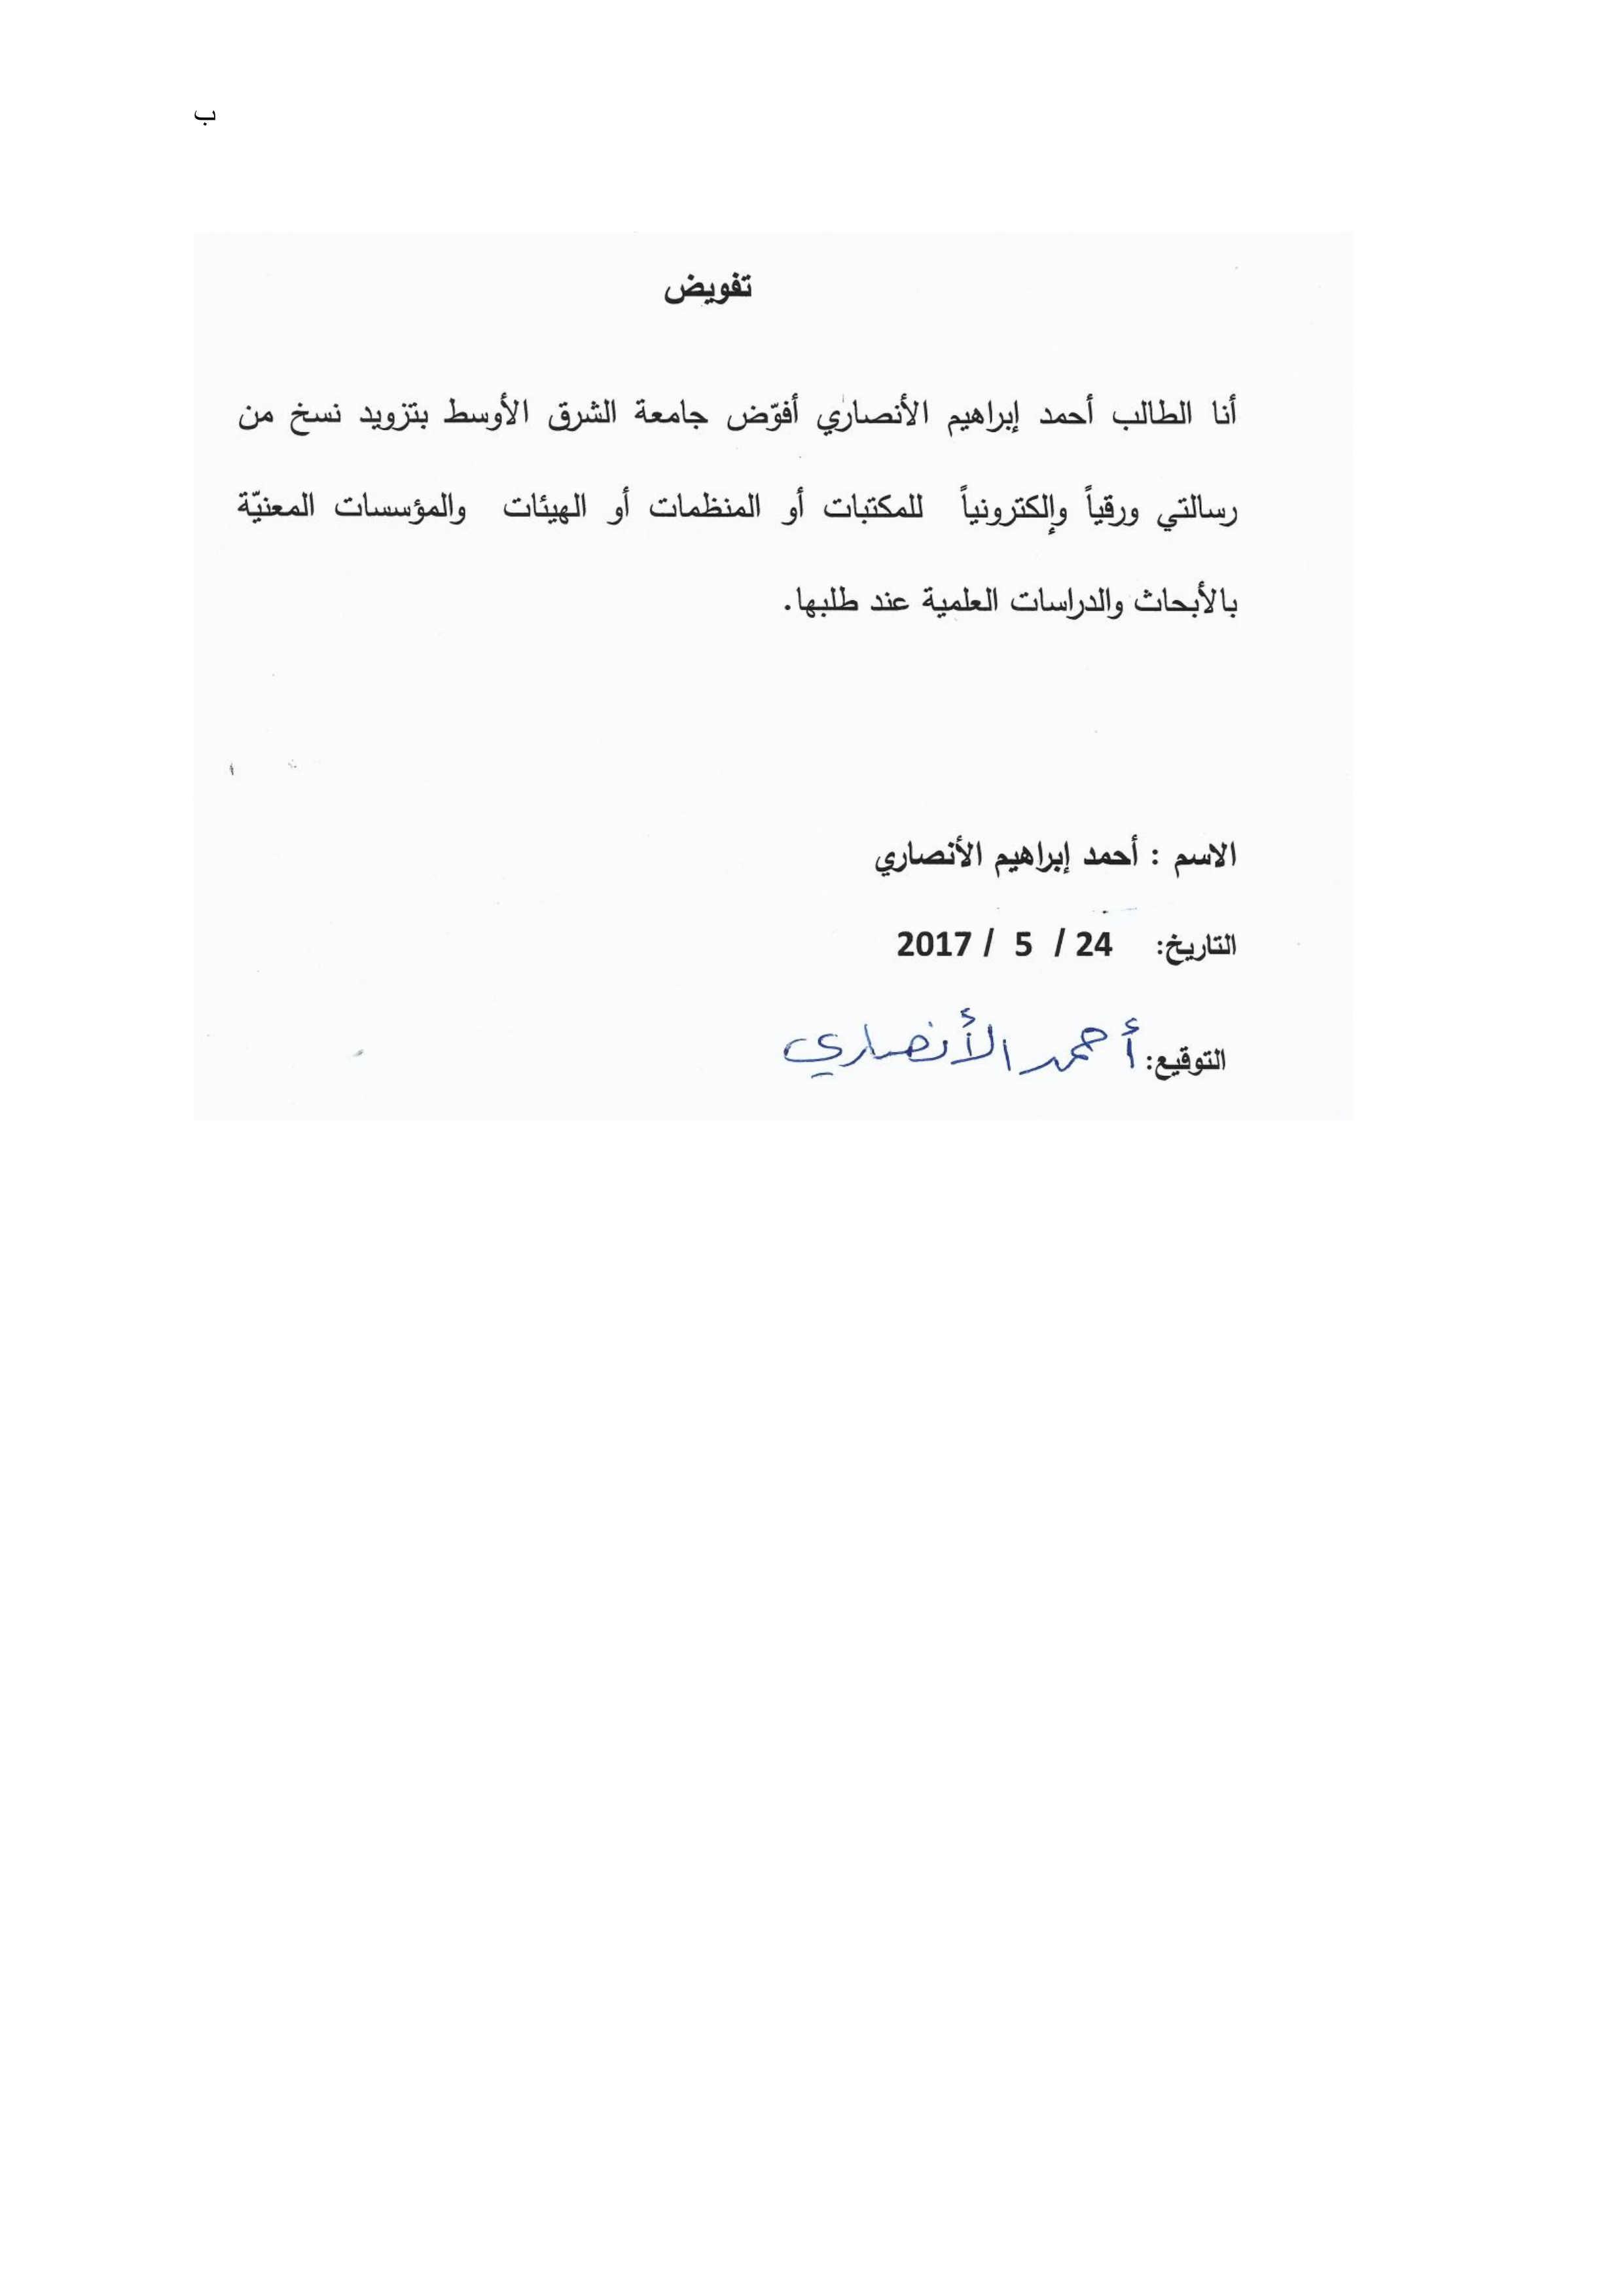 ب
تفويض
أنا الطالب أحمد إبراهيم الأنصاري أفوّض جامعة الشرق الأوسط بتزويد نسخ من
رسالتي ورقياً وإلكترونياً للمكتبات أو المنظمات أو الهيئات والمؤسسات المعنيّة
بالأبحاث والدراسات العلمية عند طلبها.
الاسم : أحمد إبراهيم الأنصاري
التاريخ: 24 / 5 / 2017
التوقيع: أحمد الأنصاري